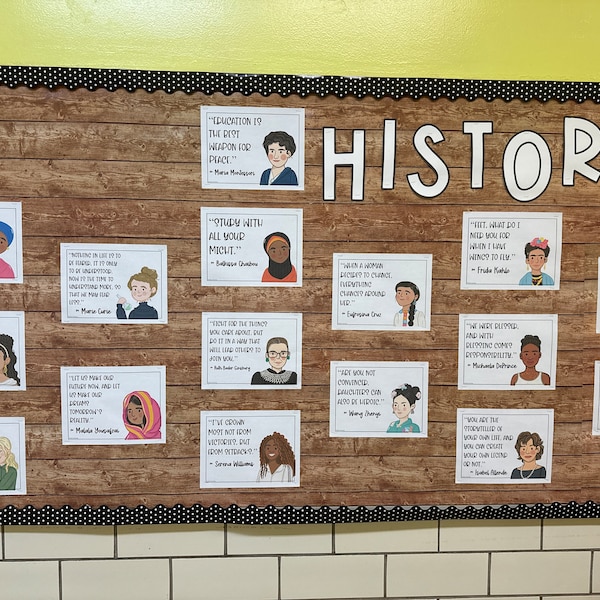 HISTOR
"EDUCATION IS
THE BEST
WEAPON FOR
PEACE."
- Maria Montessori
"STUDY WITH
ALL YOUR
MIGHT."
- Balkissa Chaibou
"FIGHT FOR THE THINGS
YOU CARE ABOUT, BUT
DO IT IN A WAY THAT
WILL LEAD OTHERS TO
JOIN YOU."
- Ruth Bader Ginsburg
"I'VE GROWN
MOST NOT FROM
VICTORIES, BUT
FROM SETBACKS."
- Serena Williams
"NOTHING IN LIFE IS TO
BE FEARED, IT IS ONLY
TO BE UNDERSTOOD.
NOW IS THE TIME TO
UNDERSTAND MORE, SO
THAT WE MAY FEAR
LESS."
- Marie Curie
"LET US MAKE OUR
FUTURE NOW, AND LET
US MAKE OUR
DREAMS
TOMORROW'S
REALITY."
- Malala Yousafzai
"WHEN A WOMAN
DECIDES TO CHANGE,
EVERYTHING
CHANGES AROUND
HER."
- Eufrosina Cruz
"ARE YOU NOT
CONVINCED,
DAUGHTERS CAN
ALSO BE HEROIC."
- Wang Zhenyi
"FEET, WHAT DO I
NEED YOU FOR
WHEN I HAVE
WINGS TO FLY."
- Frida Kahlo
"WE WERE BLESSED,
AND WITH
BLESSING COMES
RESPONSIBILITY."
- Michaela DePrince
"YOU ARE THE
STORYTELLER OF
YOUR OWN LIFE, AND
YOU CAN CREATE
YOUR OWN LEGEND
OR NOT."
- Isabel Allende